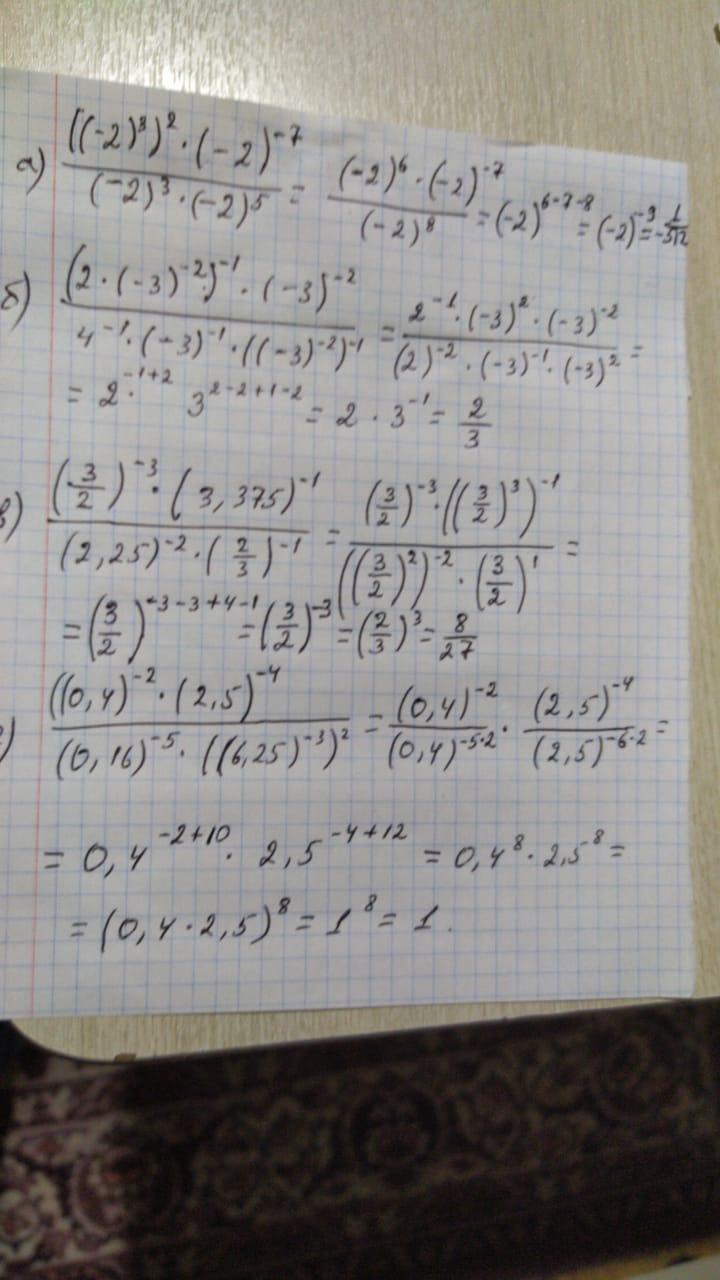 а) ((-2)³)² · (-2)⁻⁷ / (-2)³ · (-2)⁵ = (-2)⁶ · (-2)⁻⁷ / (-2)⁸ = (-2)⁶⁻⁷⁻⁸ = (-2)⁻⁹ = -1/512
б) (2 · (-3)⁻²)⁻¹ · (-3)⁻² / 4⁻¹ · (-3)⁻¹ · ((-3)⁻²)⁻¹ = 2⁻¹ · (-3)² · (-3)⁻² / (2)⁻² · (-3)⁻¹ · (-3)² =
= 2⁻¹⁺² · 3²⁻²⁺¹⁻² = 2 · 3⁻¹ = 2/3
в) (3/2)⁻³ · (3,375)⁻¹ / (2,25)⁻² · (2/3)⁻¹ = (3/2)⁻³ · ((3/2)³)⁻¹ / ((3/2)²)⁻² · (3/2)¹ =
= (3/2)⁻³⁻³⁺⁴⁻¹ = (3/2)⁻³ = (2/3)³ = 8/27
((0,4)⁻² · (2,5)⁻⁴ / (0,16)⁻⁵ · ((6,25)⁻³)² = (0,4)⁻² / (0,4)⁻⁵·² · (2,5)⁻⁴ / (2,5)⁻⁶·² =
= 0,4⁻²⁺¹⁰ · 2,5⁻⁴⁺¹² = 0,4⁸ · 2,5⁸ =
= (0,4 · 2,5)⁸ = 1⁸ = 1.